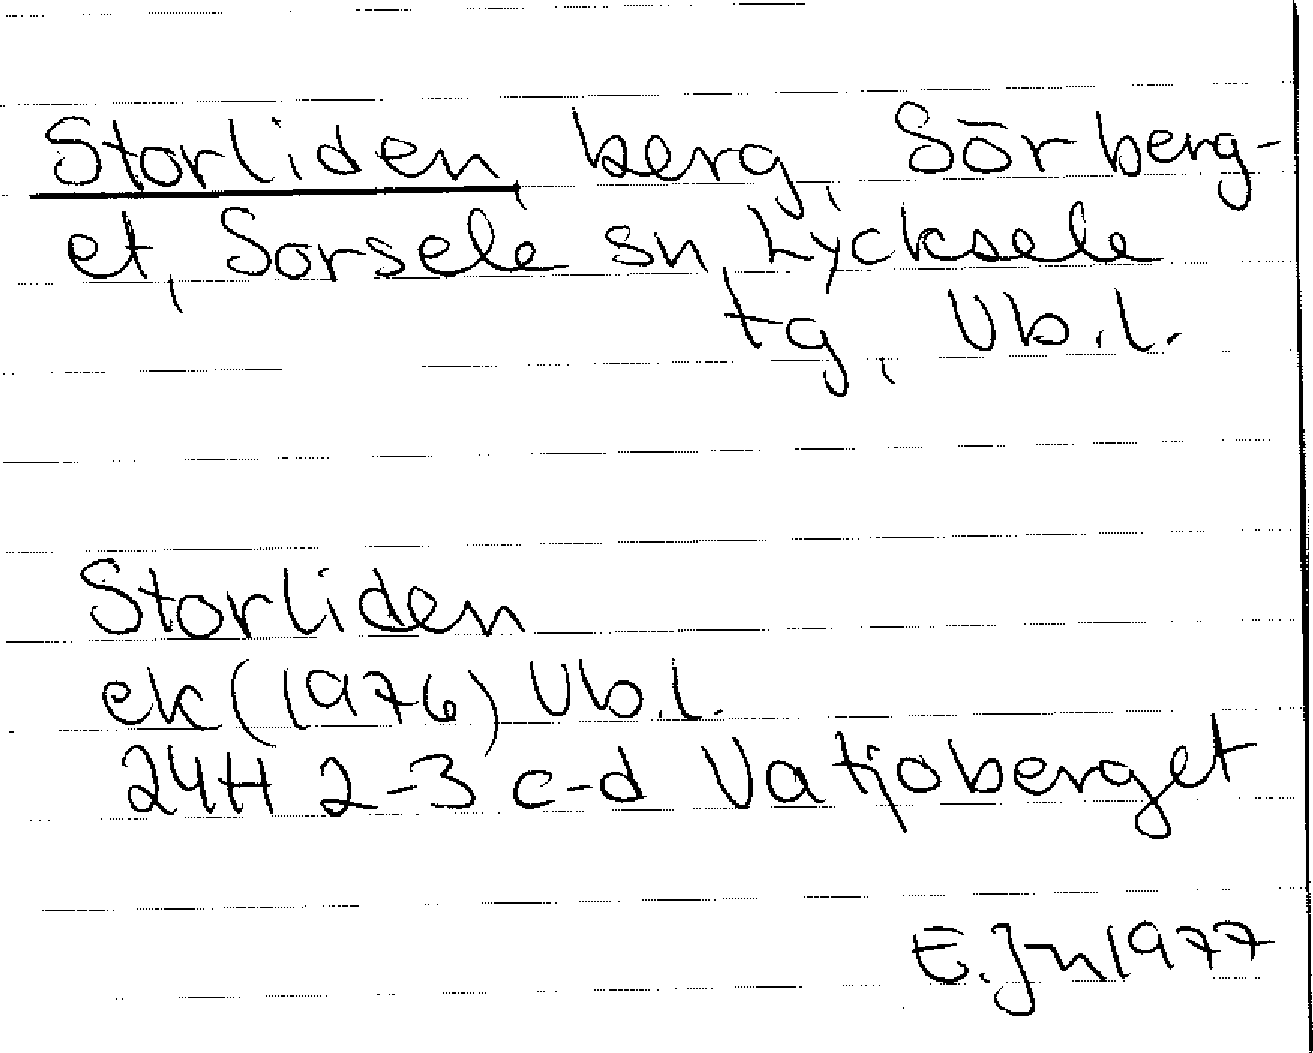 Storliden, berg, Sörberg-
et, Sorsele sn, Lycksele
tg, Vb.l.
Storliden
ek (1976) Vb.l.
24H 2-3 c-d Vatjoberget
E.Jn 1977